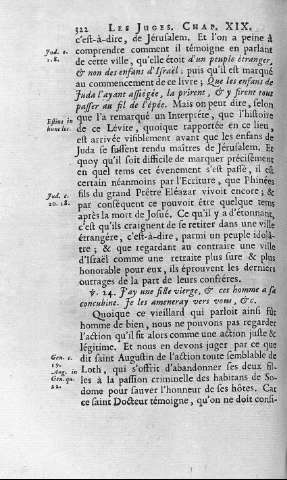 322 LES JUGES. CHAP. XIX.
c'est-à-dire, de Jérusalem. Et l'on a peine à
Jud. c.
1. 8.
comprendre comment il témoigne en parlant
de cette ville, qu'elle étoit d'un peuple étranger,
& non des enfans d'Israël: puis qu'il est marqué
au commencement de ce livre; Que les enfans de
Juda l'ayant assiegée, la prirent, & y firent tout
passer au fil de l'épée. Mais on peut dire, selon
Estius in
hunc loc.
que l'a remarqué un Interprête, que l'histoire
de ce Lévite, quoique rapportée en ce lieu,
est arrivée visiblement avant que les enfans de
Juda se fussent rendu maîtres de Jérusalem. Et
quoy qu'il soit difficile de marquer précisément
en quel tems cet évenement s'est passé, il est
certain néanmoins par l'Ecriture, que Phinées
Jud. c.
20. 28.
fils du grand Prêtre Eléazar vivoit encore; &
par conséquent ce pouvoit être quelque tems
après la mort de Josué. Ce qu'il y a d'étonnant,
c'est qu'ils craignent de se retirer dans une ville
étrangére, c'est-à-dire, parmi un peuple idolâ-
tre; & que regardant au contraire une ville
d'Israël comme une retraite plus sure & plus
honorable pour eux, ils éprouvent les derniers
outrages de la part de leurs confréres.
℣. 24. J'ay une fille vierge, & cet homme a sa
concubine. Je les ameneray vers vous, &c.
Quoique ce vieillard qui parloit ainsi fût
homme de bien, nous ne pouvons pas regarder
l'action qu'il fit alors comme une action juste &
légitime. Et nous en devons juger par ce que
Gen. c.
19.
Aug. in
Gen. qu.
42.
dit saint Augustin de l'action toute semblable de
Loth, qui s'offrit d'abandonner ses deux fil-
les à la passion criminelle des habitans de So-
dome pour sauver l'honneur de ses hôtes. Car
ce saint Docteur témoigne, qu'on ne doit consi-